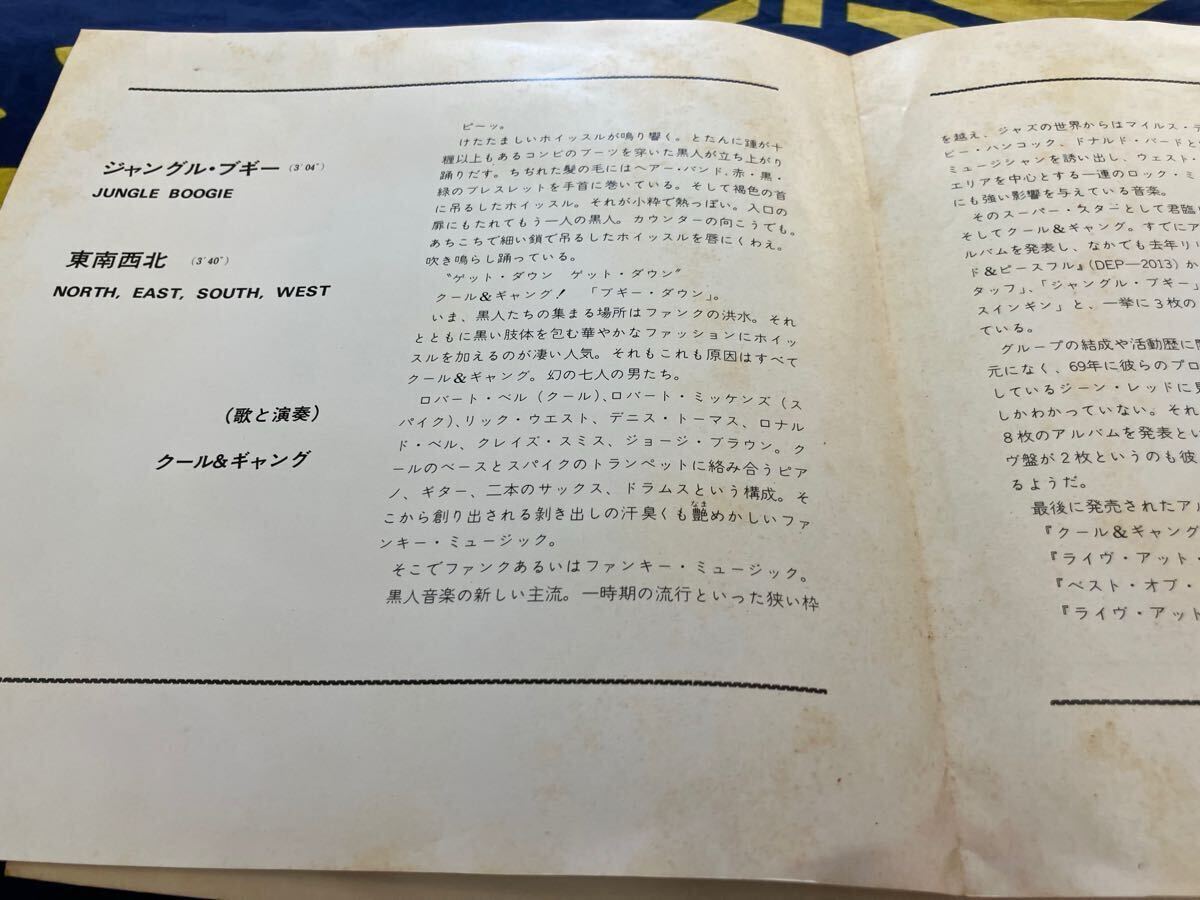 ジャングル・ブギー (3′04″)
JUNGLE BOOGIE
東南西北 (3′40″)
NORTH, EAST, SOUTH, WEST
(歌と演奏)
クール&ギャング
ピーッ。
けたたましいホイッスルが鳴り響く。とたんに踵が十
糎以上もあるコンビのブーツを穿いた黒人が立ち上がり
踊りだす。ちぢれた髪の毛にはヘアー・バンド、赤・黒・
緑のブレスレットを手首に巻いている。そして褐色の首
に吊るしたホイッスル。それが小粋で熱っぽい。入口の
扉にもたれてもう一人の黒人。カウンターの向こうでも。
あちこちで細い鎖で吊るしたホイッスルを唇にくわえ。
吹き鳴らし踊っている。
"ゲット・ダウン ゲット・ダウン"
クール&ギャング! 「ブギー・ダウン」。
いま、黒人たちの集まる場所はファンクの洪水。それ
とともに黒い肢体を包む華やかなファッションにホイッ
スルを加えるのが凄い人気。それもこれも原因はすべて
クール&ギャング。幻の七人の男たち。
ロバート・ベル (クール)、ロバート・ミッケンズ (ス
パイク)、リック・ウエスト、デニス・トーマス、ロナル
ド・ベル、クレイズ・スミス、ジョージ・ブラウン。ク
ールのベースとスパイクのトランペットに絡み合うピア
ノ、ギター、二本のサックス、ドラムスという構成。そ
こから創り出される剝き出しの汗臭くも艶めかしいファ
なま
ンキー・ミュージック。
そこでファンクあるいはファンキー・ミュージック。
黒人音楽の新しい主流。一時期の流行といった狭い枠
を越え、ジャズの世界からはマイルス・デ
ビー・ハンコック、ドナルド・バードと
ミュージシャンを誘い出し、ウェスト・
エリアを中心とする一連のロック・ミ
にも強い影響を与えている音楽。
そのスーパー・スターとして君臨
そしてクール&ギャング。すでにア
ルバムを発表し、なかでも去年リリ
ド&ピースフル』(DEP—2013) か
タッフ」、「ジャングル・ブギー」
スインギン」と、一挙に3枚の
ている。
グループの結成や活動歴に
元になく、69年に彼らのプロ
しているジーン・レッドに見
しかわかっていない。それ
8枚のアルバムを発表とい
ヴ盤が2枚というのも彼
るようだ。
最後に発売されたアル
『クール&ギャング
『ライヴ・アット・
『ベスト・オブ・
『ライヴ・アット